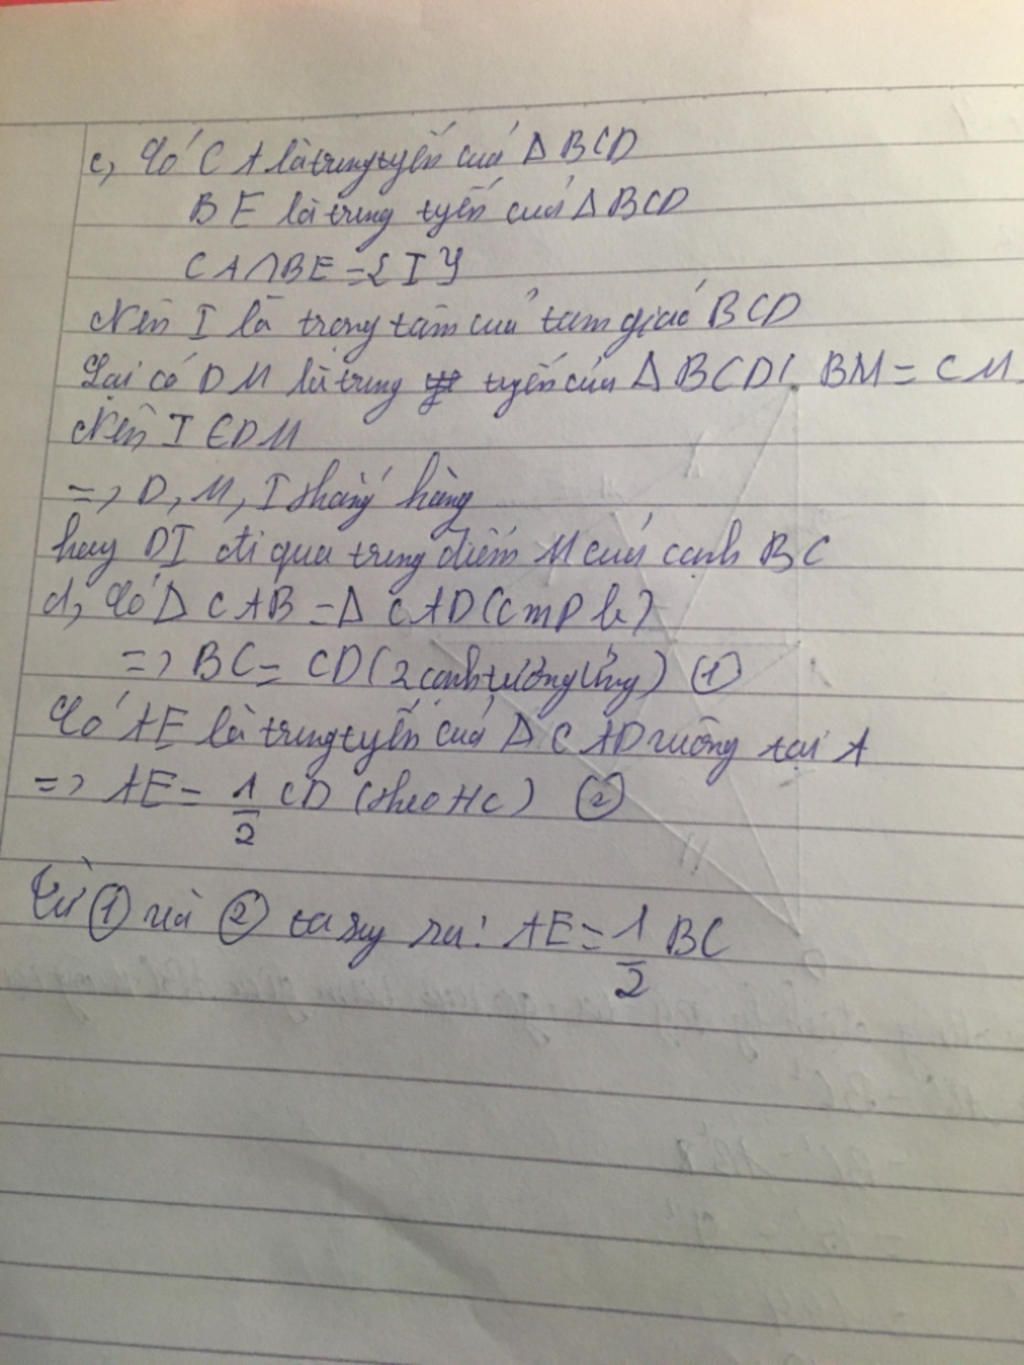 c, Có CA là trung tuyến của Δ BCD
BE là trung tuyến của Δ BCD
CA ∩ BE = {I}
Nên I là trọng tâm của tam giác BCD
Lại có DM là trung tuyến của Δ BCD( BM = CM
Nên I ∈ DM
=> D, M, I thẳng hàng
hay DI đi qua trung điểm M của cạnh BC
d, Có Δ CAB = Δ CAD (cmp b)
=> BC = CD (2 cạnh tương ứng) (1)
Có AE là trung tuyến của Δ CAD vuông tại A
=> AE = 1/2 CD (theo t/c) (2)
Từ (1) và (2) ta suy ra: AE = 1/2 BC